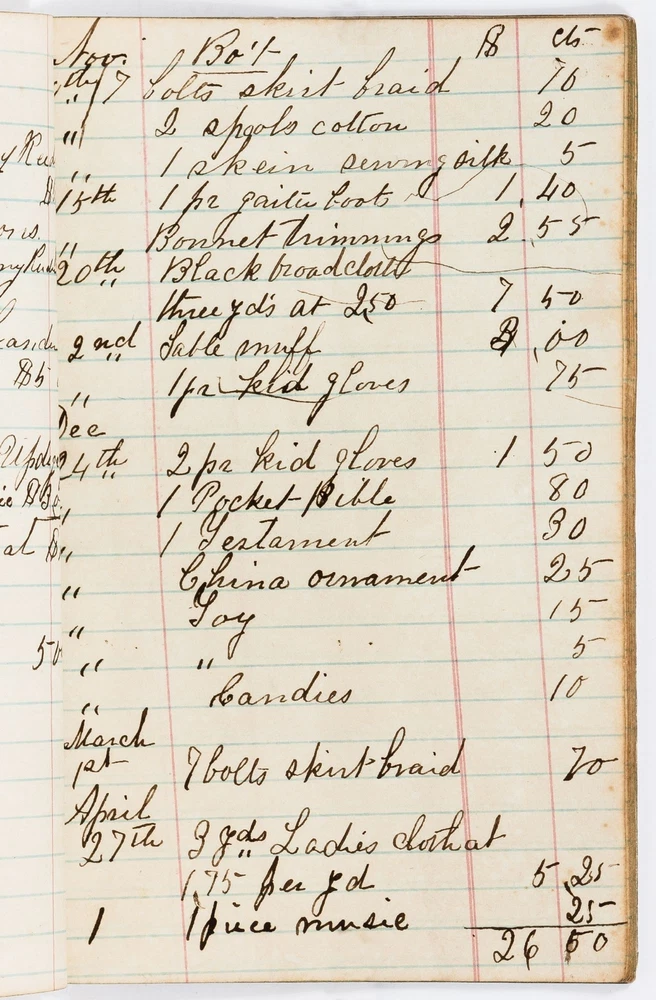 Nov. Bo't $ cts
" th 7 bolts skirt braid 70
" 2 spools cotton 20
" 1 skein sewing silk 5
15th 1 pr gaiter boots 1.40
" Bonnet trimmings 2.55
20th " Black broadcloth
three yds at 2.50 7 50
2nd " Sable muff 3.00
" 1 pr kid gloves 75
Dec
24th " 2 pr kid gloves 1 50
" 1 Pocket Bible 80
" 1 Testament 30
" China ornament 25
" Toy 15
" " 5
" Candies 10
March
1st 7 bolts skirt braid 70
April
27th 3 yds " Ladies cloth at
1.75 per yd 5.25
1 1 piece music 25
26 50
$5
at
50